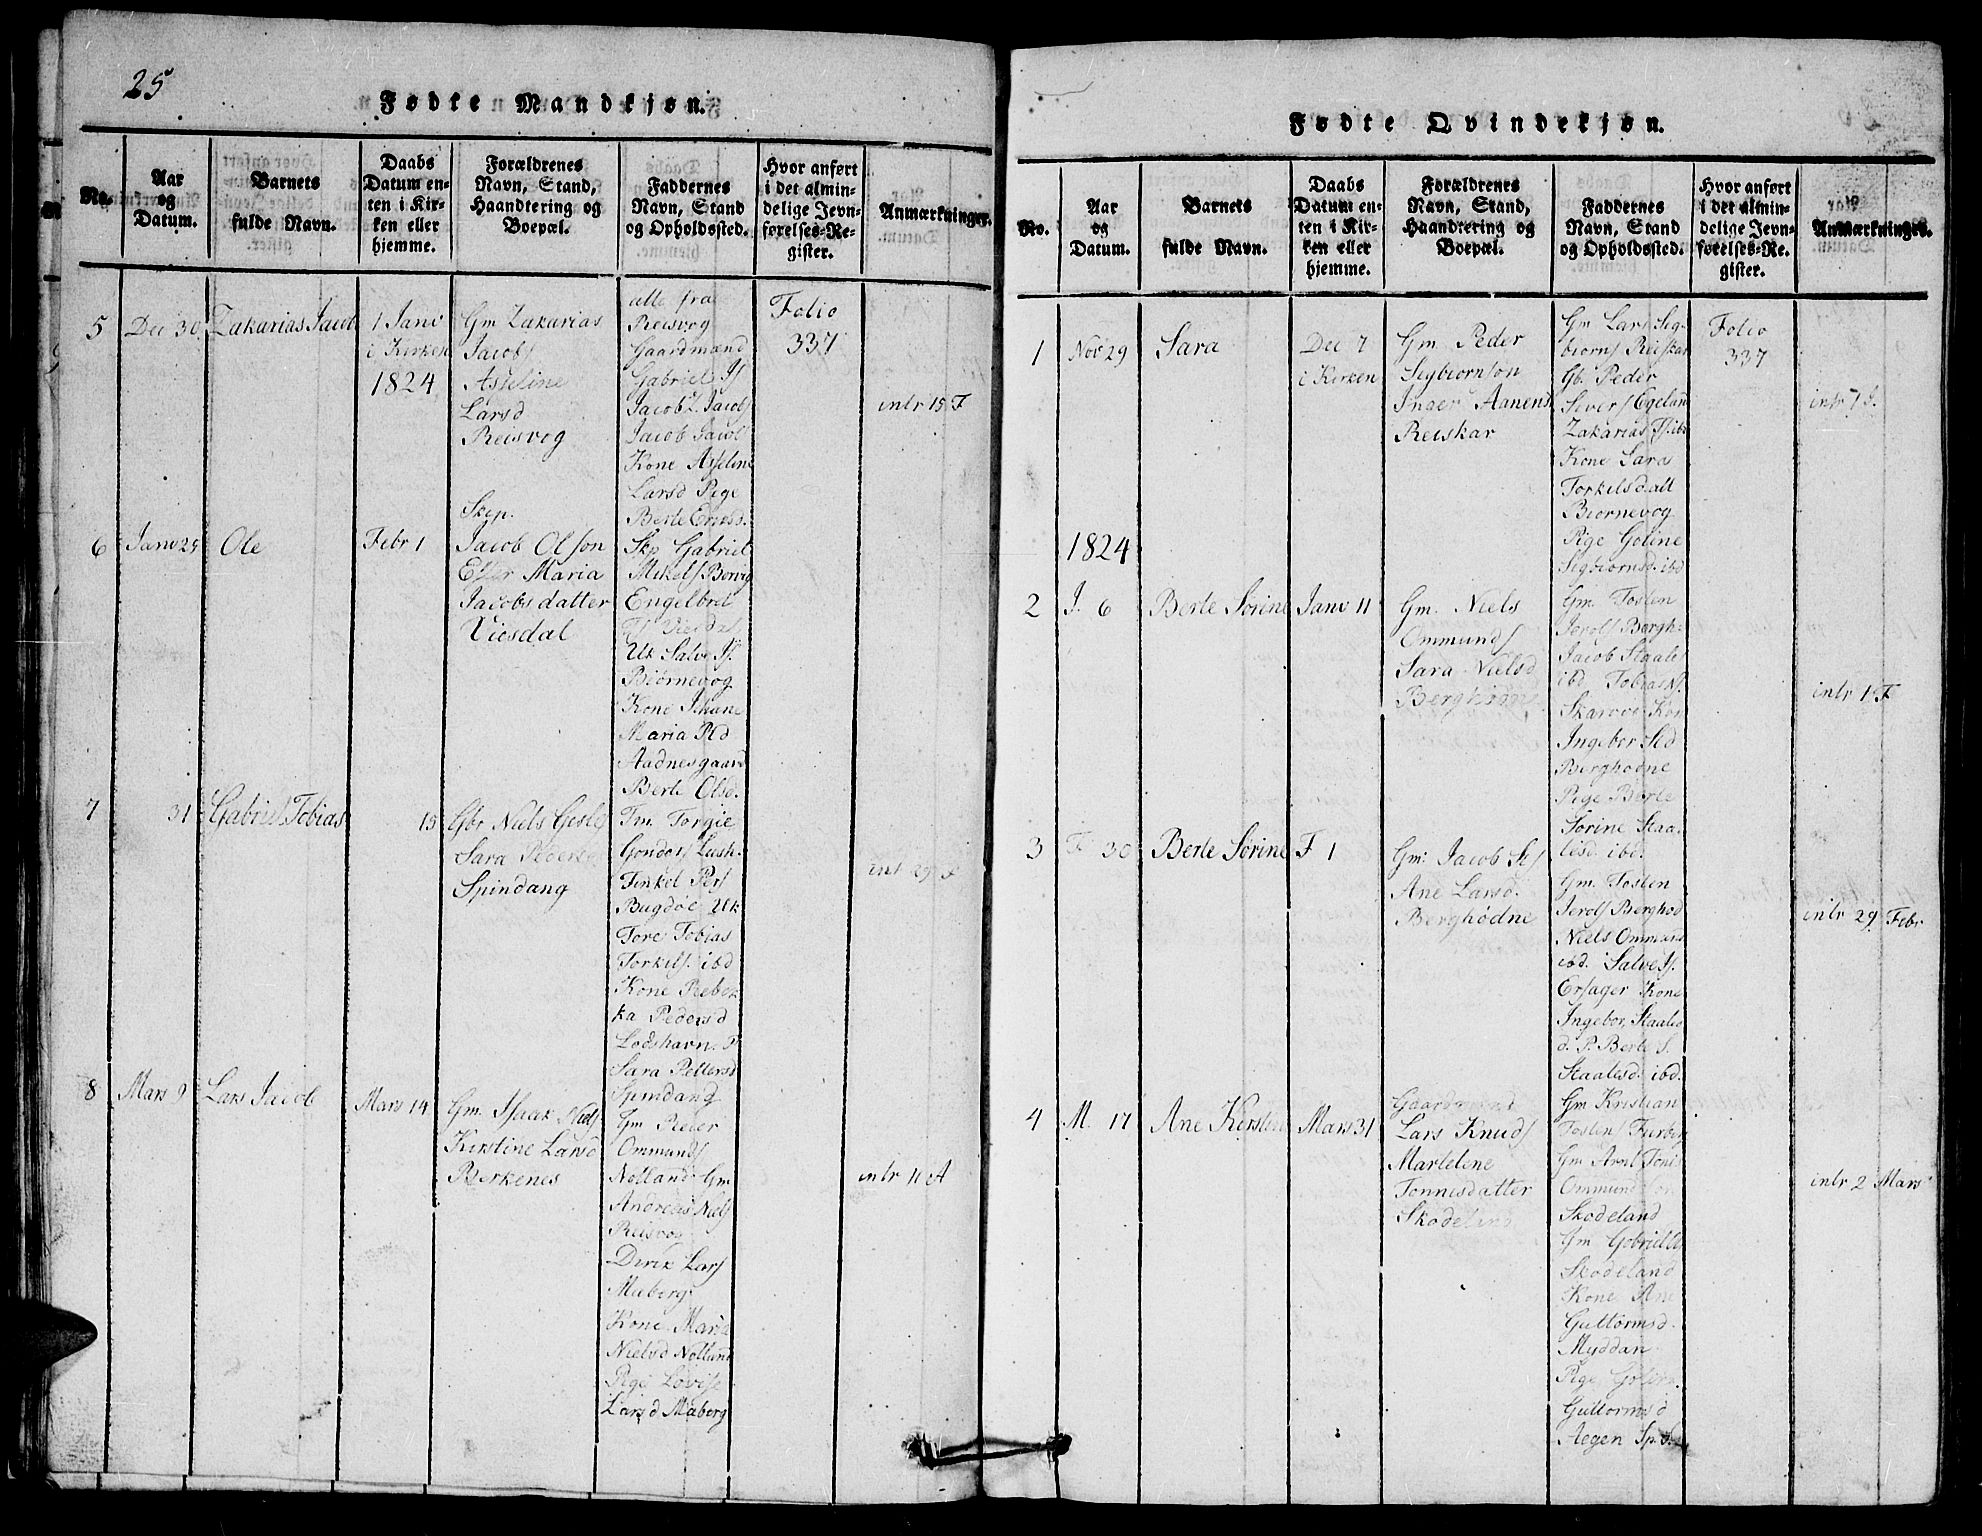 25
Fødte Mandkjøn.
No.
Aar
og
Datum.
Barnets
fulde Navn.
Daabs
Datum en-
ten i Kir-
ken eller
hjemme.
Forældrenes
Navn, Stand,
Haandtering og
Boepæl.
Faddernes
Navn, Stand
og Opholdssted.
Hvor anført
i det almin-
delige Jevn-
førelses-Re-
gister.
Anmærkninger.
5
Dec 30
Zakarias Jacob
1 Janv
i Kirken
1824
Gm Zakarias
Jacobs
Asseline
Larsd
Reisvog
alle fra
Reisvog
Gaardmænd
Gabriel Js
Jacob Z. Jacobs
Jacob Jacobs
Kone Asseline
Larsd Pige
Berte
Folio
337
intr 15 F
6
Janv 25
Ole
Febr 1
Skp.
Jacob Olsson
Ester Maria
Jacobsdatter
Viesdal
Skp Gabriel
Mikels Borvig
Engelbret
Uk Salve Js.
Biørnevog
Kone
Maria Pd
Aadnesgaard
Berte Olsd.
7
31
Gabriel Tobias
15
Gbr Niels
Sara Peders
Spindang
Tm. Torgie
Gonders Lush.
Tinkel Pers
Bugdøe Uk
Tore Tobias
Torkels. ibd
Kone Rebek
ka Pedersd
Lodshavn. P
Sara Pettersd
Spindang
int 29 F
8
Mars 9
Lars Jacob
Mars 14
Gm. Isaak Niels
Kirstine Larsd
Berkenes
Gm Peder
Ommunds
Nolland Gm
Andreas Niels
Reisvog
Dirik Lars
Maberg
Kone Maria
Nielsd Nolland
Pige Lovise
Larsd Maberg
intr 11 A
Fødte Qvindekjøn.
No.
Aar
og
Datum.
Barnets
fulde Navn.
Daabs
Datum en-
ten i Kir-
ken eller
hjemme.
Forældrenes
Navn, Stand,
Haandtering og
Boepæl.
Faddernes
Navn, Stand
og Opholdssted.
Hvor anført
i det almin-
delige Jevn-
førelses-Re-
gister.
Anmærkninger.
1
Nov 29
Sara
Dec 7
i Kirken
Gm. Peder
Segbiornson
Inger Aanens
Reiskar
Gm Lars Seg-
biorns Reiskar
Gb. Peder
Severs Egelan
Zakarias
Kone Sara
Torkelsd. alt
Biornevog
Pige Goline
Segbiornsd. ibd
Folio
337
intr 7 J.
1824
2
J. 6
Berte Sørine
Janv 11
Gm. Niels
Ommunds
Sara Nielsd
Berghødne
Gm. Tosten
Jerols Bergh.
Jacob Staales
ibd Tobias N.
Skarvøe Kon
Ingebor Sd
Berghødne
Pige Berte
Sørine Staa-
lesd. ibd.
intr 1 F
3
F 30
Berte Sørine
F 1
Gm. Jacob Sts
Ane Larsd.
Berghødne
Gm. Tosten
Jerols Berghod
Niels Ommund
ibd. Salve Js.
Ersager Kone
Ingebor, Staales
d. P. Berte S.
Staalesd. ibd.
intr 29 Febr
4
M. 17
Ane Kersten
Mars 31
Gaardmand
Lars Knuds
Marteline
Tonnesdatter
Skodeland
Gm Kristian
Tostens
Gm Arnt Tønis
Ommund
Skodeland
Gm Gabriel
Skodeland
Kone Ane
Guttormsd.
Myddan
Pige Goline
Guttormsd
Aegen Sp.
intr 2 Mars